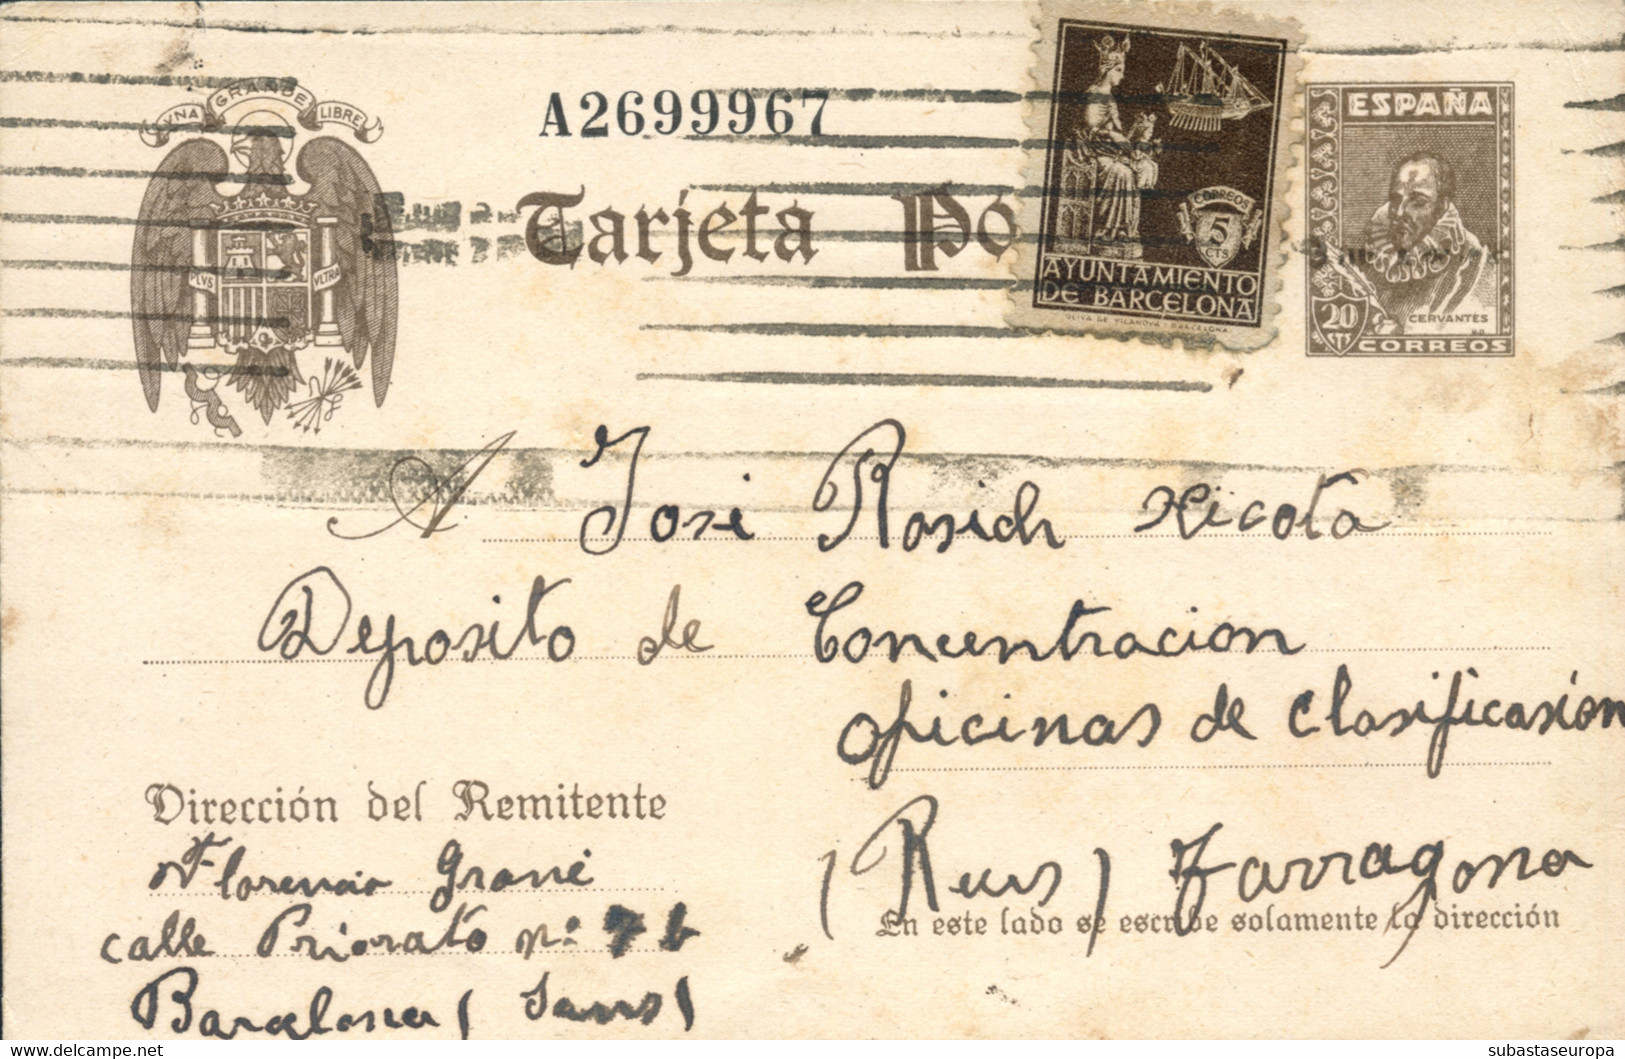 VNA GRANDE LIBRE
PLVS VLTRA
A2699967
Tarjeta Po
CORREOS
5
CTS
AYUNTAMIENTO
DE BARCELONA
OLIVA DE VILANOVA-BARCELONA
ESPAÑA
CERVANTES
20
CTS
CORREOS
A José Rosich Nicota
Deposito de Concentracion
oficinas de Clasificasión
(Reus) Tarragona
En este lado se escribe solamente la dirección
Dirección del Remitente
Florencio Grané
calle Priorato nº 7 b
Barcelona (Sans)
subastaseuropa